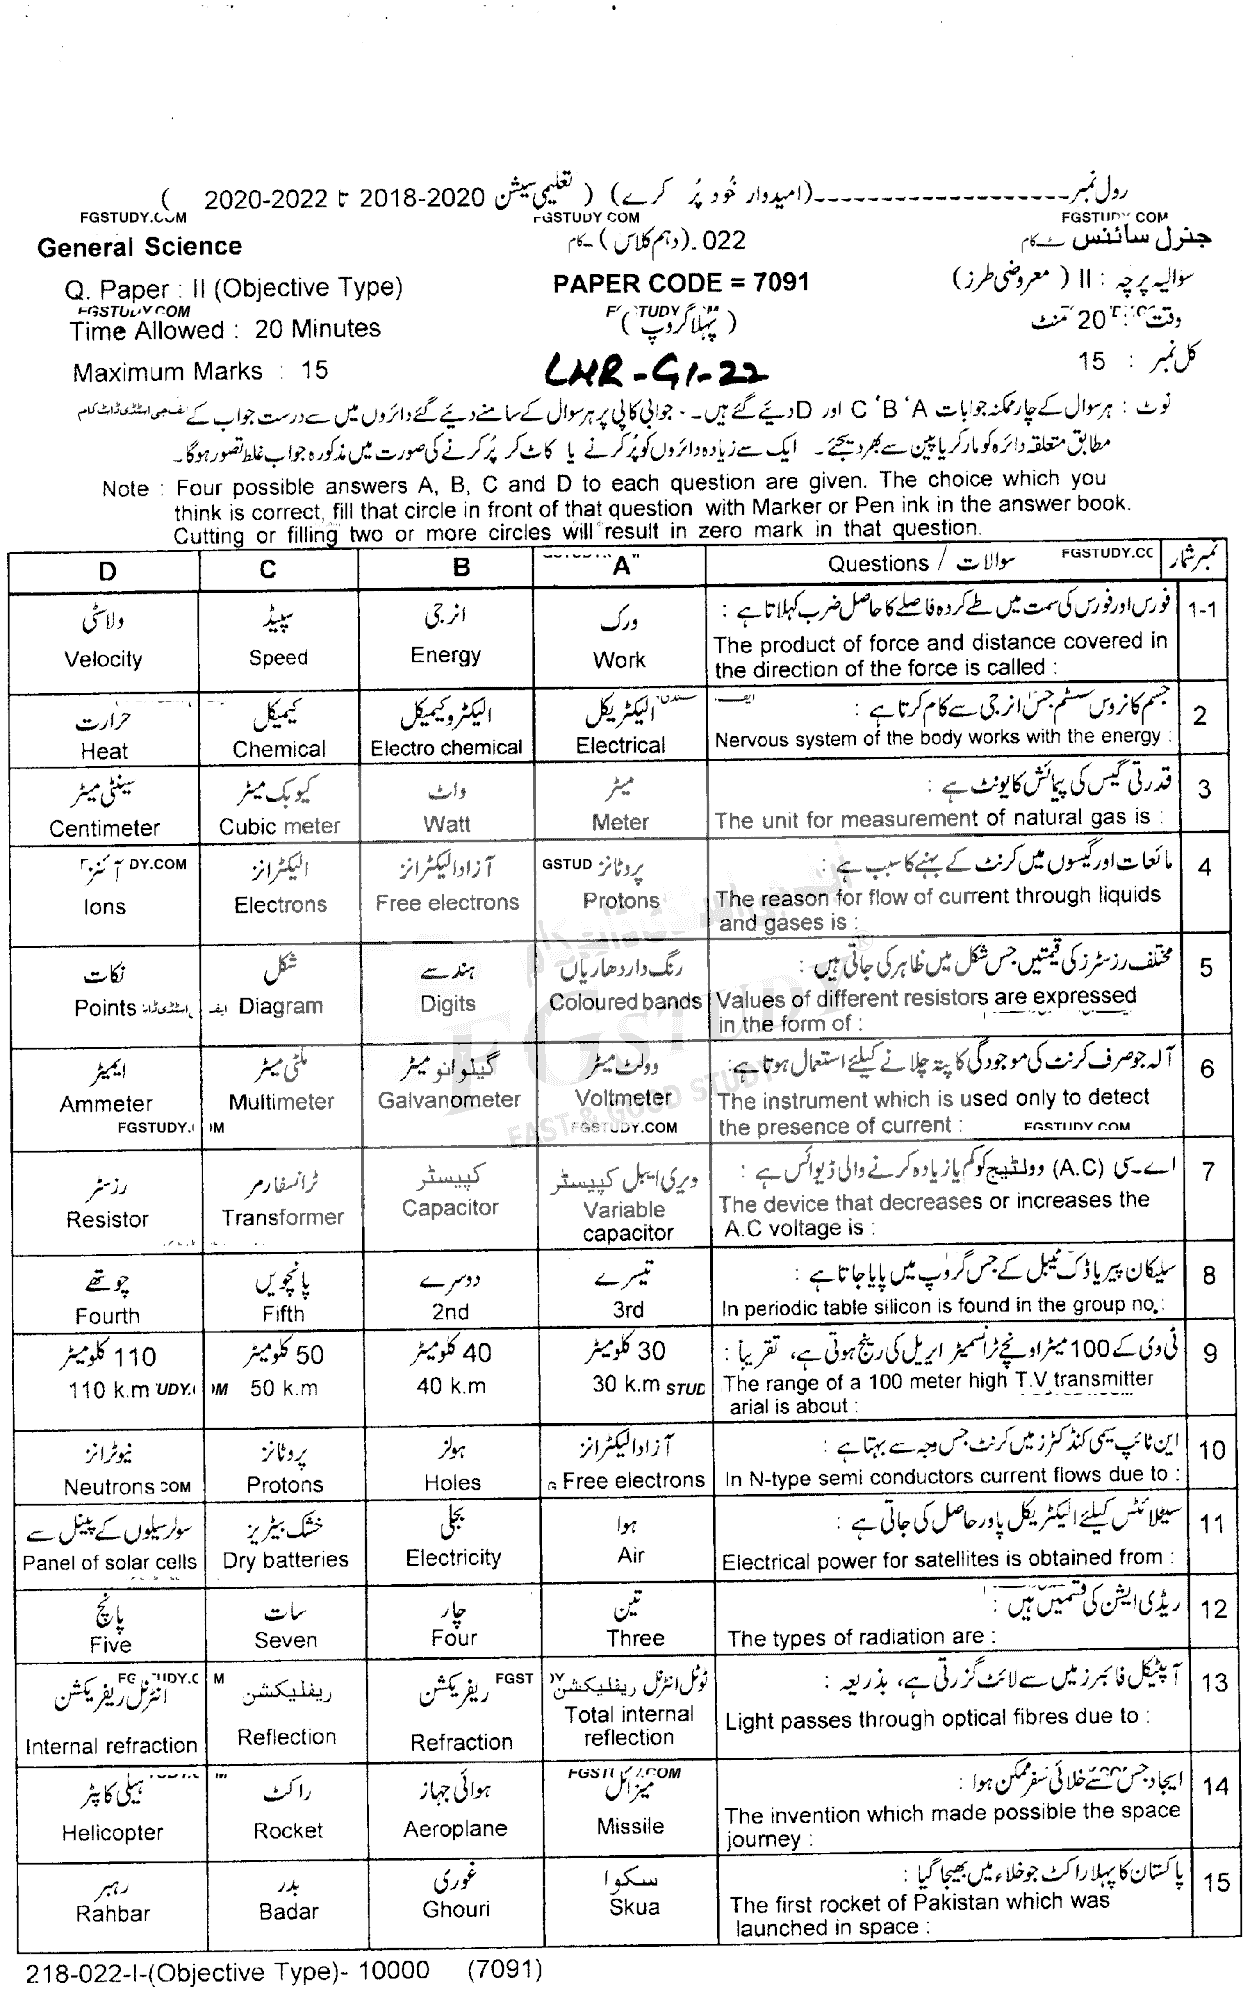 رول نمبر --------------------(امیدوار خود پُر کرے) ( تعلیمی سیشن 2018-2020 تا 2020-2022 )
FGSTUDY.COM FGSTUDY.COM FGSTUDY.COM
General Science 022.(دہم کلاس) جنرل سائنس
Q. Paper : II (Objective Type) PAPER CODE = 7091 سوالیہ پرچہ : II ( معروضی طرز)
FGSTUDY.COM
Time Allowed : 20 Minutes (پہلا گروپ) وقت : 20 منٹ
Maximum Marks : 15 LHR-G1-22 کل نمبر : 15
نوٹ : ہر سوال کے چار ممکنہ جوابات A'B'C اور D دیئے گئے ہیں۔ جوابی کاپی پر ہر سوال کے سامنے دیئے گئے دائروں میں سے درست جواب کے
مطابق متعلقہ دائرہ کو مارکر یا پین سے بھر دیجئے۔ ایک سے زیادہ دائروں کو پُر کرنے یا کاٹ کر پُر کرنے کی صورت میں مذکورہ جواب غلط تصور ہوگا۔
Note : Four possible answers A, B, C and D to each question are given. The choice which you
think is correct, fill that circle in front of that question with Marker or Pen ink in the answer book.
Cutting or filling two or more circles will result in zero mark in that question.
D C B A Questions / سوالات نمبر شمار
ولاسٹی سپیڈ انرجی ورک فورس اور فورس کی سمت میں طے کردہ فاصلے کا حاصل ضرب کہلاتا ہے : 1-1
Velocity Speed Energy Work The product of force and distance covered in
the direction of the force is called :
حرارت کیمیکل الیکٹروکیمیکل الیکٹریکل جسم کا نروس سسٹم جس انرجی سے کام کرتا ہے : 2
Heat Chemical Electro chemical Electrical Nervous system of the body works with the energy :
سینٹی میٹر کیوبک میٹر واٹ میٹر قدرتی گیس کی پیمائش کا یونٹ ہے : 3
Centimeter Cubic meter Watt Meter The unit for measurement of natural gas is :
آئنز الیکٹرانز آزاد الیکٹرانز پروٹانز مائعات اور گیسوں میں کرنٹ کے بہنے کا سبب ہے : 4
Ions Electrons Free electrons Protons The reason for flow of current through liquids
and gases is :
نکات شکل ہندسے رنگ دار دھاریاں مختلف رزسٹرز کی قیمتیں جس شکل میں ظاہر کی جاتی ہیں : 5
Points Diagram Digits Coloured bands Values of different resistors are expressed
in the form of :
ایمیٹر ملٹی میٹر گیلوانومیٹر وولٹ میٹر آلہ جو صرف کرنٹ کی موجودگی کا پتہ چلانے کیلئے استعمال ہوتا ہے : 6
Ammeter Multimeter Galvanometer Voltmeter The instrument which is used only to detect
the presence of current :
FGSTUDY.COM FGSTUDY.COM
رزسٹر ٹرانسفارمر کپیسٹر ویری ایبل کپیسٹر اے۔سی (A.C) وولٹیج کو کم یا زیادہ کرنے والی ڈیوائس ہے : 7
Resistor Transformer Capacitor Variable capacitor The device that decreases or increases the
A.C voltage is :
چوتھے پانچویں دوسرے تیسرے سلیکان پیریاڈک ٹیبل کے جس گروپ میں پایا جاتا ہے : 8
Fourth Fifth 2nd 3rd In periodic table silicon is found in the group no. :
110 کلومیٹر 50 کلومیٹر 40 کلومیٹر 30 کلومیٹر ٹی وی کے 100 میٹر اونچے ٹرانسمیٹر ایریل کی رینج ہوتی ہے، تقریباً : 9
110 k.m 50 k.m 40 k.m 30 k.m The range of a 100 meter high T.V transmitter
arial is about :
نیوٹرانز پروٹانز ہولز آزاد الیکٹرانز این ٹائپ سیمی کنڈکٹرز میں کرنٹ جس وجہ سے بہتا ہے : 10
Neutrons Protons Holes Free electrons In N-type semi conductors current flows due to :
سولر سیلوں کے پینل سے خشک بیٹریز بجلی ہوا سیٹلائٹس کیلئے الیکٹریکل پاور حاصل کی جاتی ہے : 11
Panel of solar cells Dry batteries Electricity Air Electrical power for satellites is obtained from :
پانچ سات چار تین ریڈی ایشن کی قسمیں ہیں : 12
Five Seven Four Three The types of radiation are :
انٹرنل ریفریکشن ریفلیکشن ریفریکشن ٹوٹل انٹرنل ریفلیکشن آپٹیکل فائبرز میں سے لائٹ گزرتی ہے، بذریعہ : 13
Internal refraction Reflection Refraction Total internal reflection Light passes through optical fibres due to :
ہیلی کاپٹر راکٹ ہوائی جہاز میزائل ایجاد جس سے خلائی سفر ممکن ہوا : 14
Helicopter Rocket Aeroplane Missile The invention which made possible the space
journey :
رہبر بدر غوری سکوا پاکستان کا پہلا راکٹ جو خلاء میں بھیجا گیا : 15
Rahbar Badar Ghouri Skua The first rocket of Pakistan which was
launched in space :
218-022-I-(Objective Type)- 10000 (7091)
FGSTUDY
FAST & GOOD STUDY